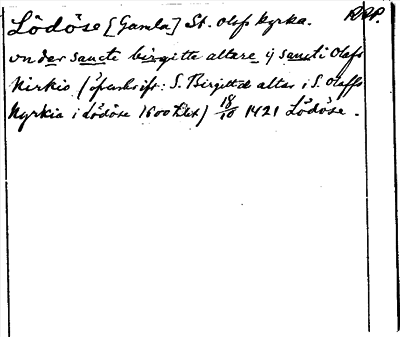 Lödöse [Gamla] St. Olofs kyrka. RAP.
vnder sancte birgitte altare ij sancti Olafs
kirkio (överskrift: S. Birgittæ altar i S. Olaffs
Kyrkia i Lödöse 1600 talet) 18/10 1421 Lödöse.